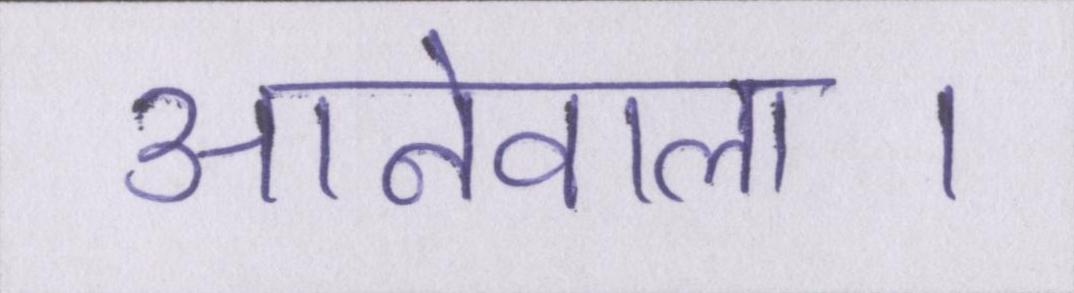 आनेवाला ।